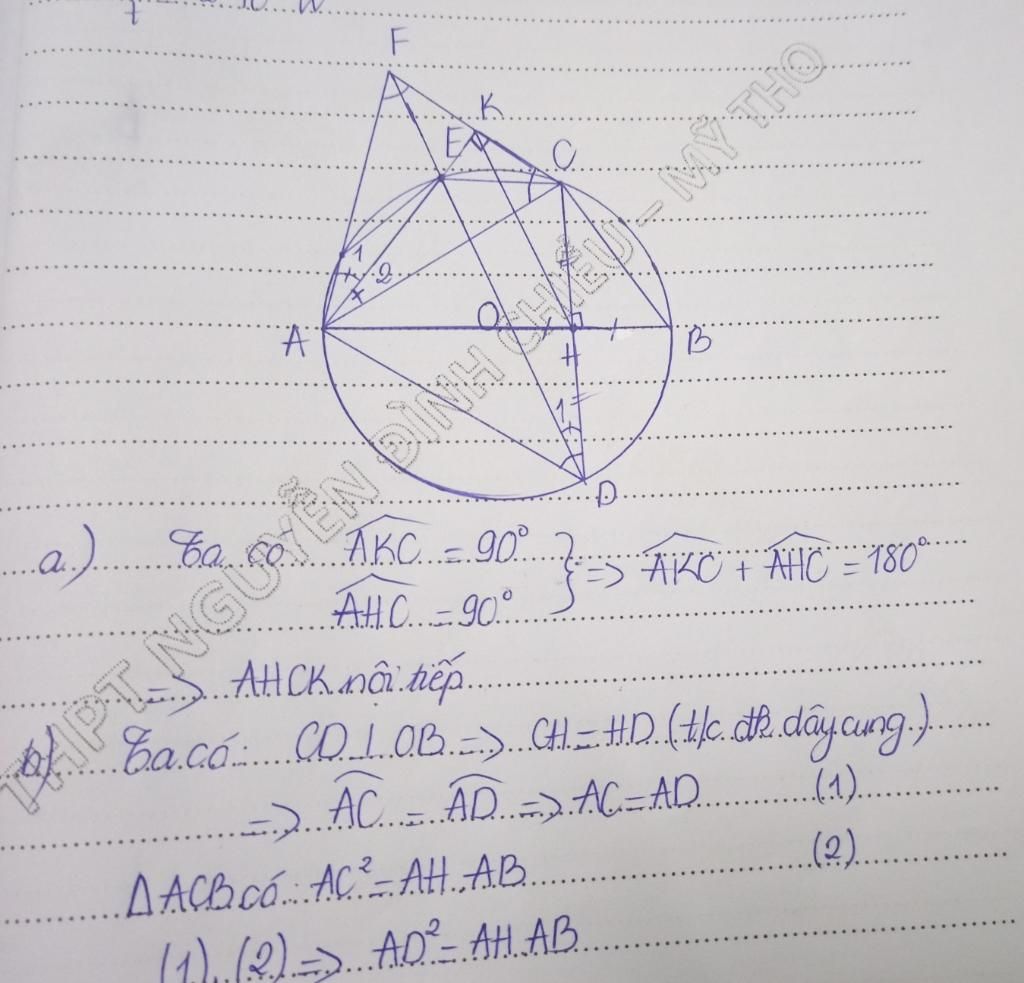 F
K
E
C
1
2
A
O
B
H
1
D
a.) Ta có AKC = 90°
AHC = 90°
} => AKC + AHC = 180°
=> AHCK nội tiếp
b/ Ta có: CD ⊥ OB => CH = HD (t/c đk dây cung)
=> AC = AD => AC = AD (1)
Δ ACB có: AC² = AH.AB (2)
(1), (2) => AD² = AH.AB
THPT NGUYỄN ĐÌNH CHIỂU – MỸ THO